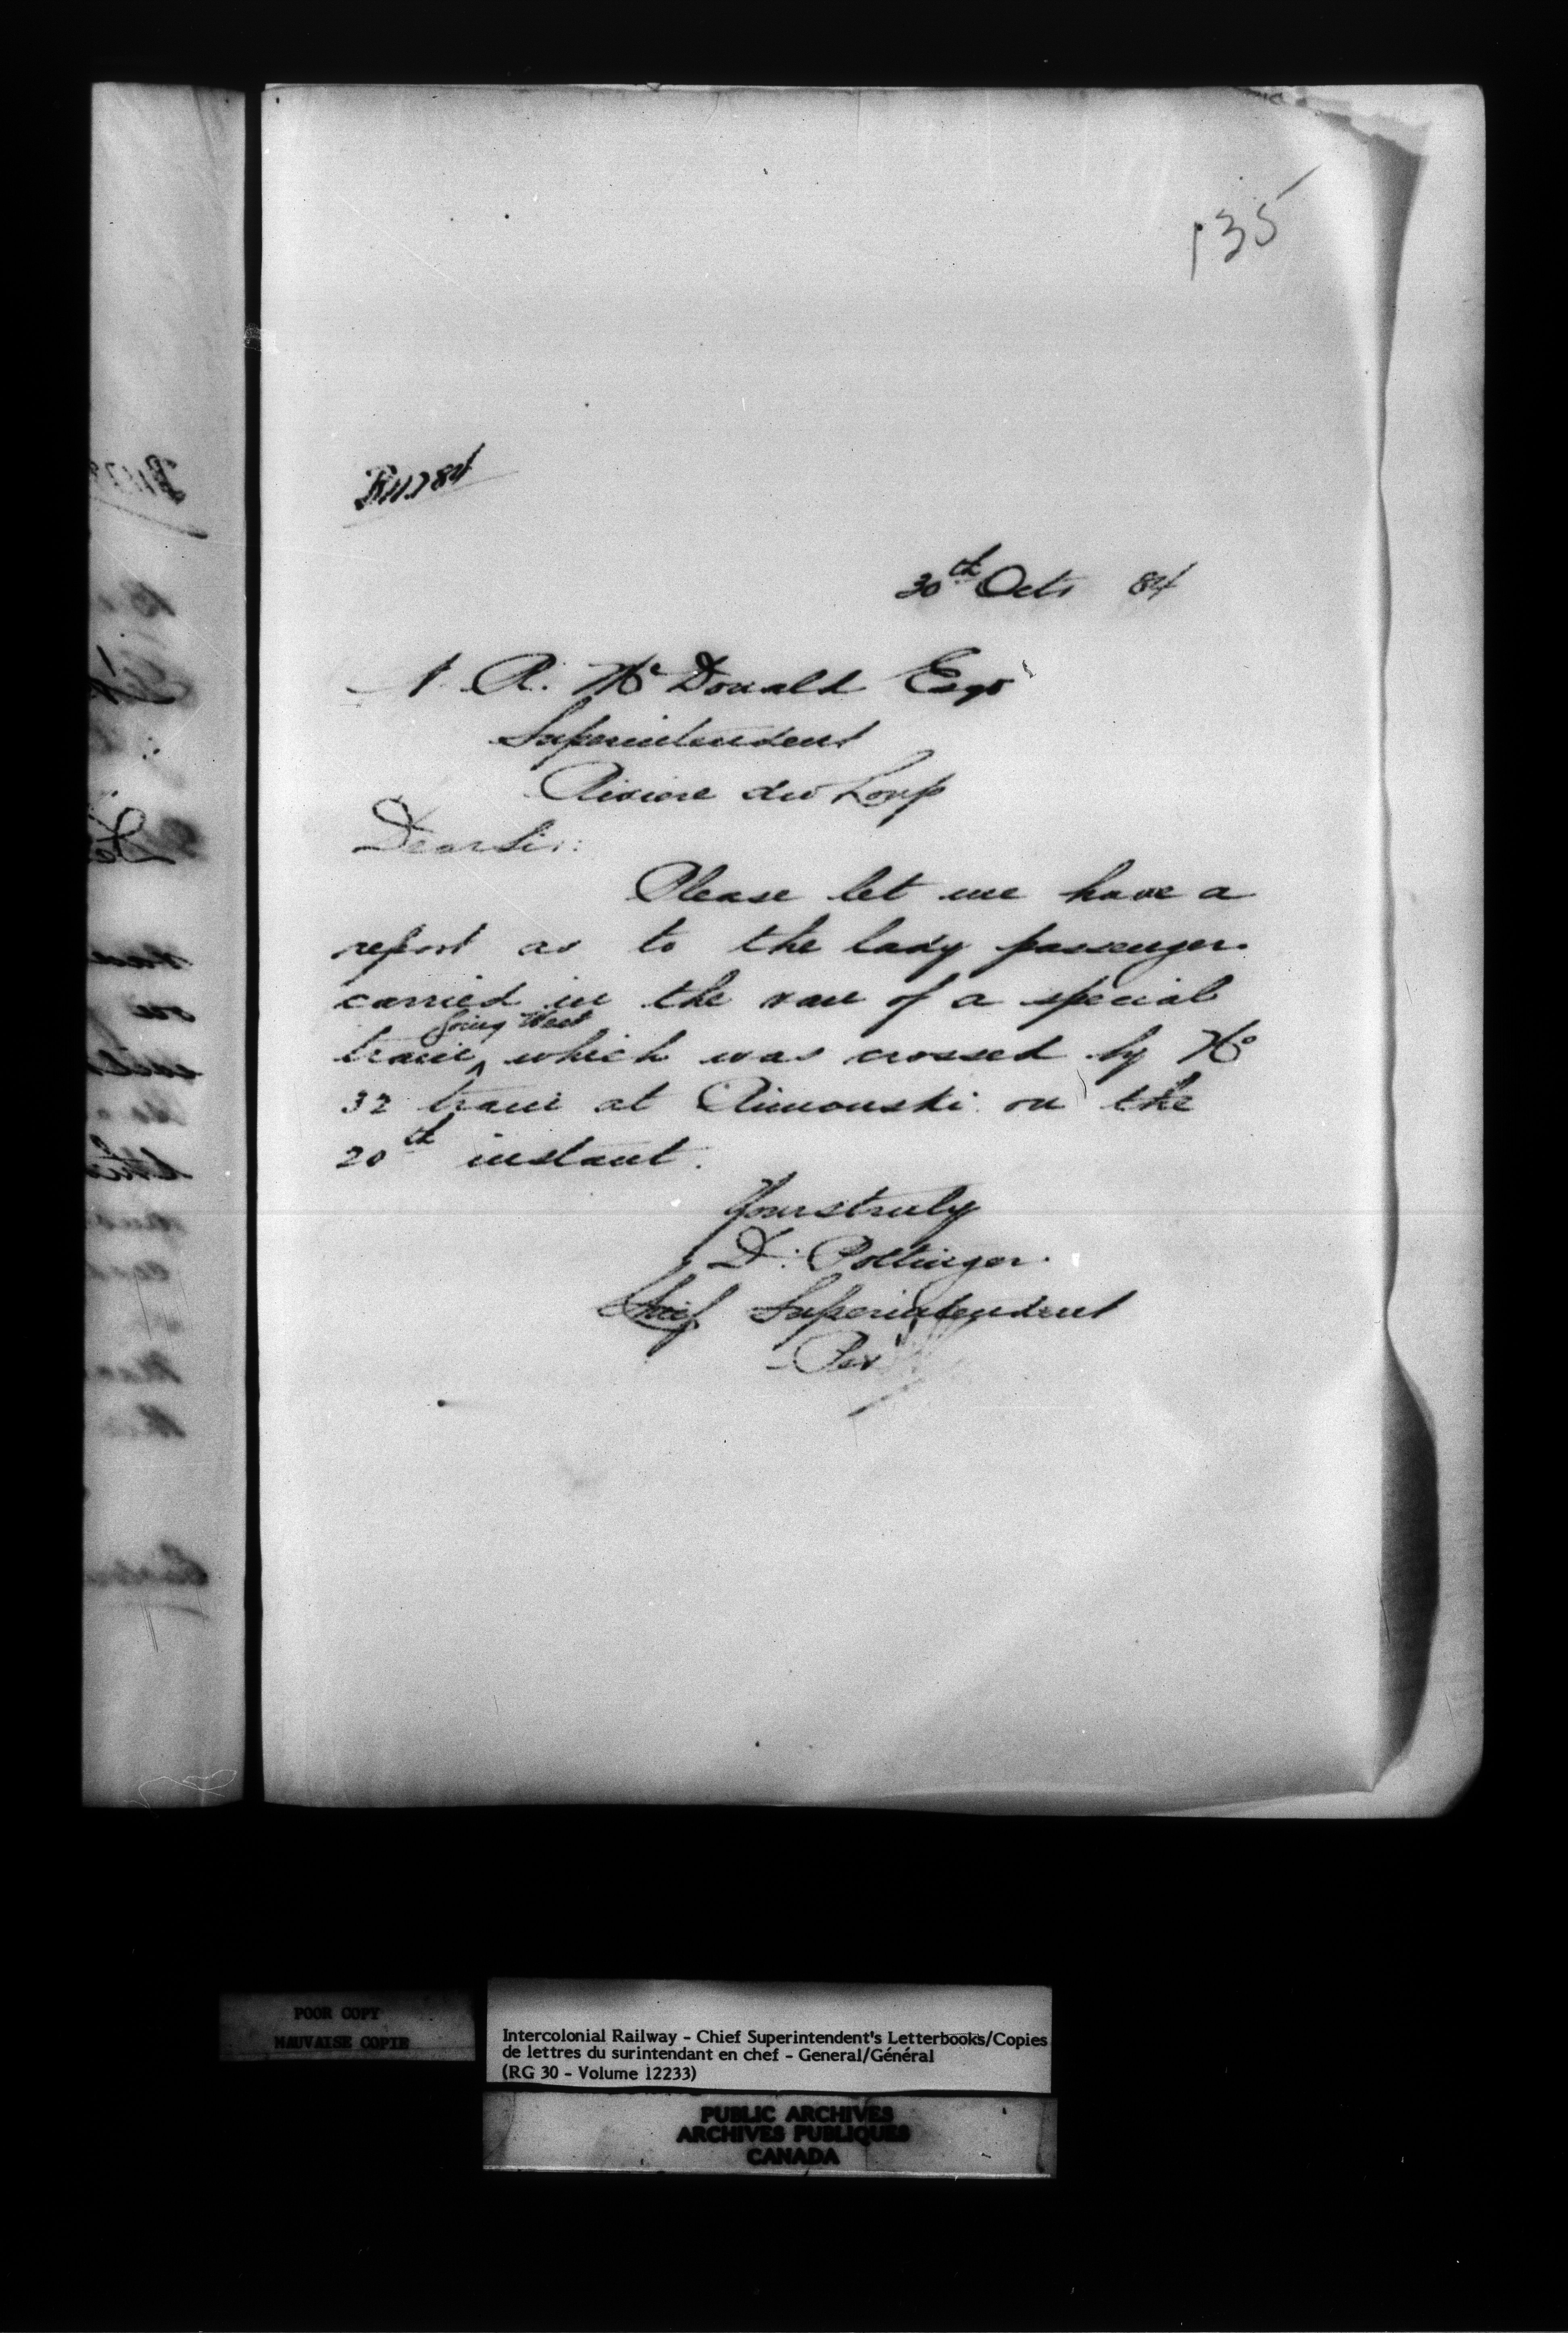 135
30th Octr 84
A R. McDonald Esqr
Superintendent
Riviere du Loup
Dear Sir:
Please let me have a
report as to the lady passenger
carried in the van of a special
train going West which was crossed by No
32 train at Rimouski on the
20th instant.
Yours truly
D. Pottinger.
Chief Superintendent
Per
POOR COPY
MAUVAISE COPIE
Intercolonial Railway - Chief Superintendent's Letterbooks/Copies
de lettres du surintendant en chef - General/Général
(RG 30 - Volume 12233)
PUBLIC ARCHIVES
ARCHIVES PUBLIQUES
CANADA